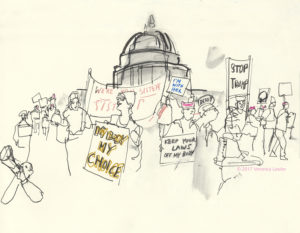 STOP
TRUMP
I'M
WITH
HER
MY BODY
MY
CHOICE
KEEP YOUR
LAWS
OFF MY BODY
©2017 Veronica Lawlor